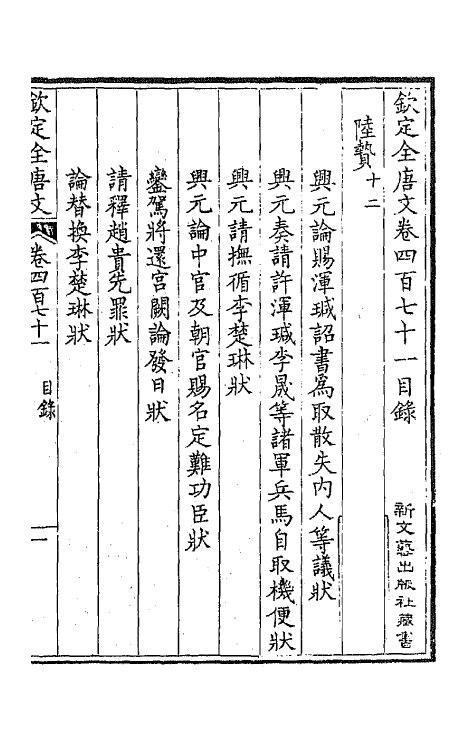 欽定全唐文卷四百七十一目錄
新文藝出版社藏書
陸贄十二
興元論賜渾瑊詔書為取散失內人等議狀
興元奏請許渾瑊李晟等諸軍兵馬自取機便狀
興元請撫循李楚琳狀
興元論中官及朝官賜名定難功臣狀
鑾駕將還宮闕論發日狀
請釋趙貴先罪狀
論替換李楚琳狀
欽定全唐文
卷四百七十一
目錄
一